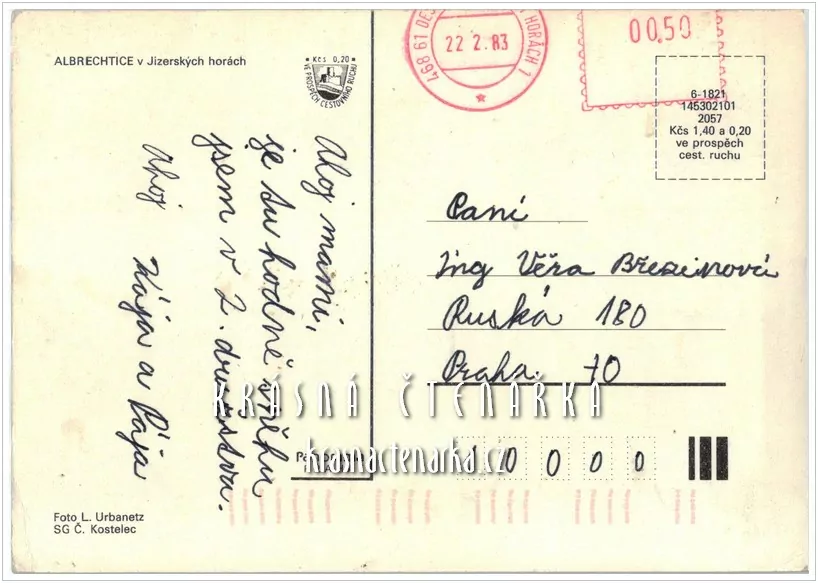 ALBRECHTICE v Jizerských horách
Kčs 0,20
VE PROSPĚCH CESTOVNÍHO RUCHU
Ahoj mami,
je tu hodně sněhu
jsem v 2. družstvu.
Ahoj Kája a Pája
468 61 DES HORÁCH 1
22 2. 83
00.50
6-1821
145302101
2057
Kčs 1,40 a 0,20
ve prospěch
cest. ruchu
Paní
Ing Věra Březinová
Ruská 180
Praha 10
1 0 0 0 0
KRÁSNÁ ČTENÁŘKA
krasnactenarka.cz
Foto L. Urbanetz
SG Č. Kostelec